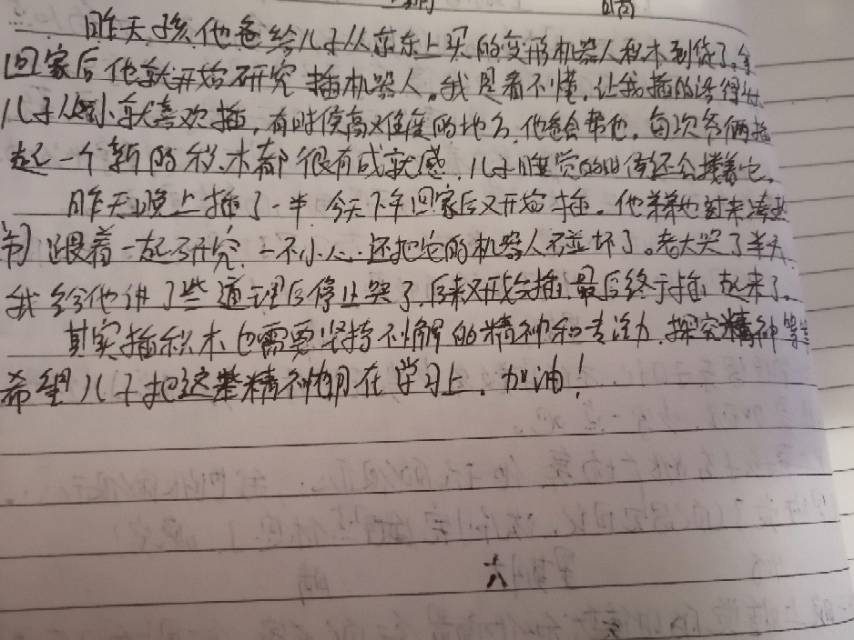 晴
昨天孩他爸给儿子从京东上买的变形机器人积木到货了。
回家后他就开始研究插机器人。我是看不懂,让我插的话得
儿子从小就喜欢插,有时侯高难度的地方,他爸会帮他,每次爷俩插
起一个新的积木都很有成就感,儿子睡觉的时侯还会搂着它。
昨天晚上插了一半,今天下午回家后又开始插。他弟弟也过来凑
跟着一起研究,一不小心还把它的机器人不碰坏了。老大哭了半天
我给他讲了些道理后停止哭了,后来又开始插,最后终于插起来了。
其实插积木也需要坚持不懈的精神和专注力,探究精神等等
希望儿子把这些精神用在学习上,加油!
六